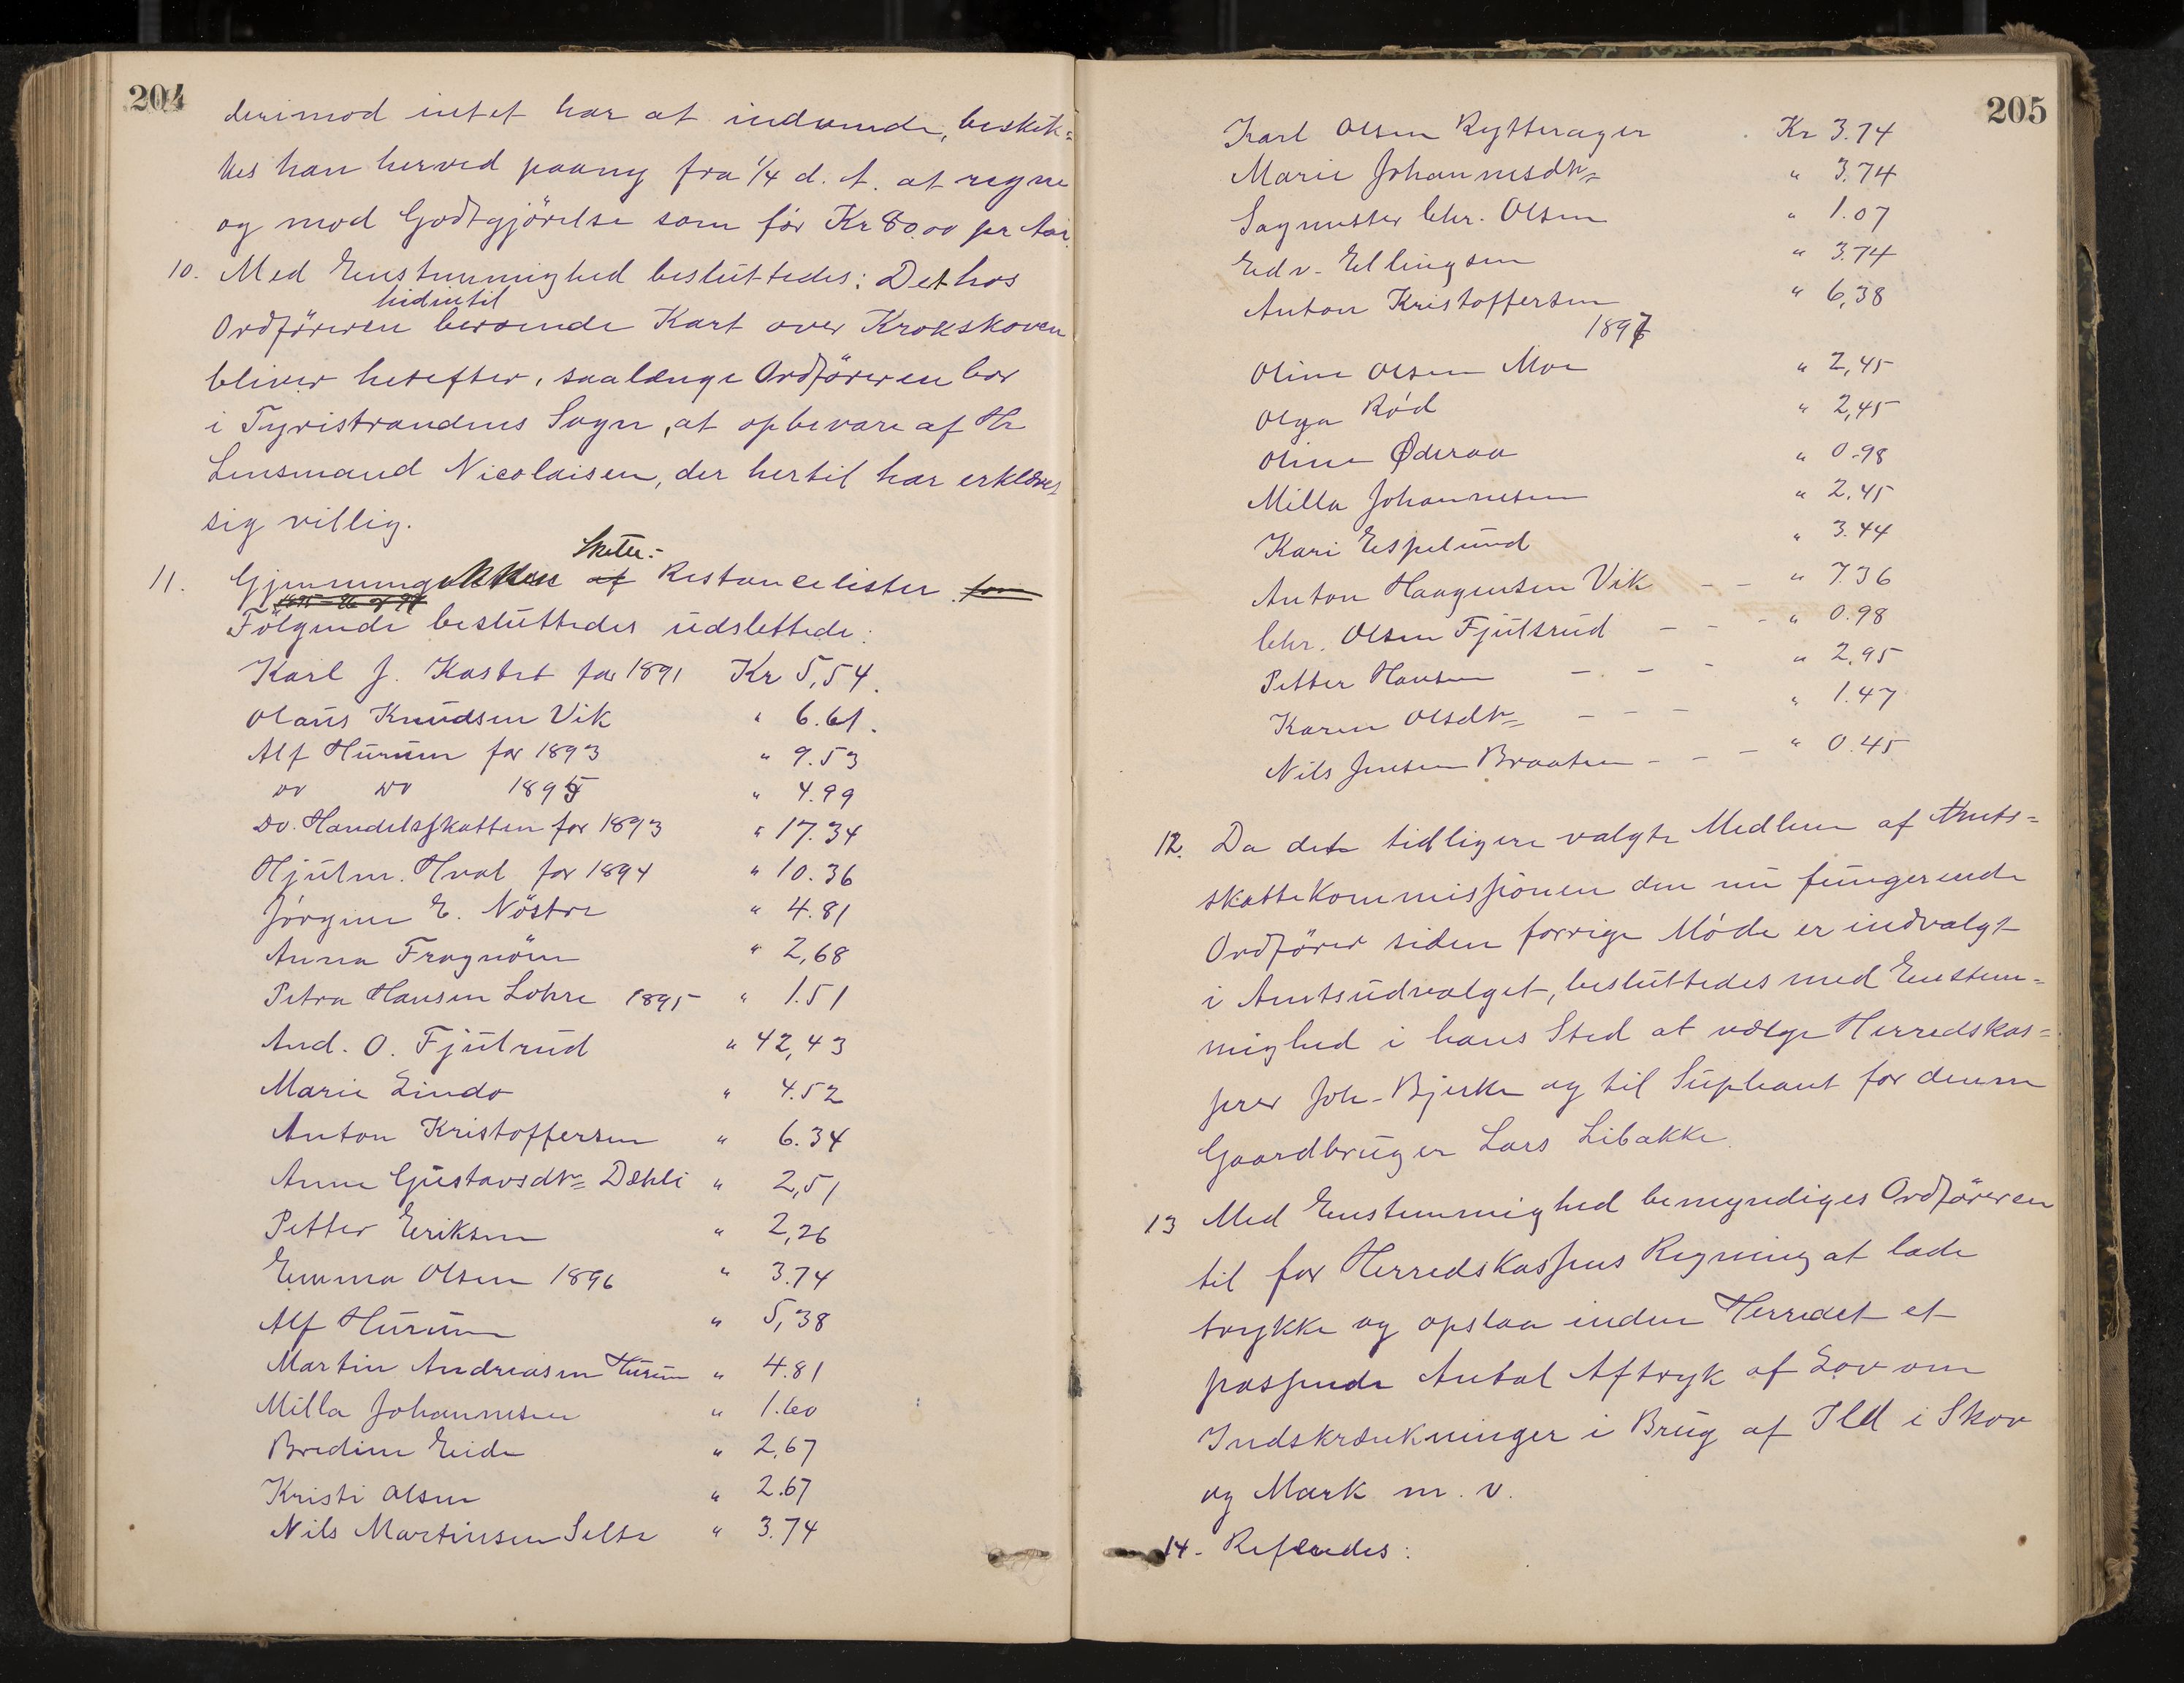 204
derimod intet har at indvende, beskik=
kes han herved paany fra 1/4 d. A. at regne
og mod Godtgjörelse som för Kr 80.00 pr Aar.
10. Med Enstemmighed besluttedes: Det hos
hidintil
Ordföreren beroende Kart over Krokskoven
bliver herefter, saalænge Ordföreren bor
i Tyristrandens Sogn, at opbevare af Hr
Lensmand Nicolaisen, der hertil har erklæret
sig villig.
Skatte-
11. Gjennemg af Restancelister som
1895-96 og 97
Fölgende besluttedes udslettede:
Karl J. Kastet for 1891 Kr 5,54.
Olaus Knudsen Vik " 6.61.
Alf Hurum for 1893 " 9.53
Do Do 1895 " 4.99
Do. Handelsskatten for 1893 " 17.34
Hjulm. Hval for 1894 " 10.36
Jörgine E. Nöstre " 4.81
Anna Fragnöen " 2,68
Petra Hansen Lohre 1895 " 1.51
And. O. Fjulrud " 42,43
Marie Lindo " 4.52
Anton Kristoffersen " 6.34
Anne Gustavsdtr= Dæhli " 2,51
Petter Eriksen " 2,26
Emma Olsen 1896 " 3.74
Alf Hurum " 5,38
Martin Andreasen Hurum " 4.81
Milla Johannesen " 1.60
Bredine Eide " 2,67
Kristi Olsen " 2.67
Nils Martinsen Selte " 3.74
205
Karl Olsen Rytterager Kr 3.74
Marie Johannesdtr= " 3.74
Sagmester Chr. Olsen " 1.07
Edv. Ellingsen " 3.74
Anton Kristoffersen " 6,38
1897
Oline Olsen Moe " 2,45
Olga Röd " 2,45
Oline Øderaa " 0.98
Milla Johannesen " 2.45
Kari Espelund " 3.44
Anton Haagensen Vik - - " 7.36
Chr. Olsen Fjulsrud - - - " 0.98
Petter Hansen - - - " 2,95
Karen Olsdtr= - - - " 1.47
Nils Jensen Braaten - - - " 0.45
12. Da det tidligere valgte Medlem af Amts=
skattekommissionen den nu fungerende
Ordförer siden forrige Möde er indvalgt
i Amtsudvalget, besluttedes med Enstem=
mighed i hans Sted at vælge Herredskas=
serer Joh. Bjerke og til Supleant for denne
Gaardbruger Lars Libakke.
13 Med Enstemmighed bemyndiges Ordföreren
til for Herredskassens Regning at lade
trykke og opslaa inden Herredet et
passende Antal Aftryk af Lov om
Indskrænkninger i Brug af Ild i Skov
og Mark m. v.
14. Refereredes: